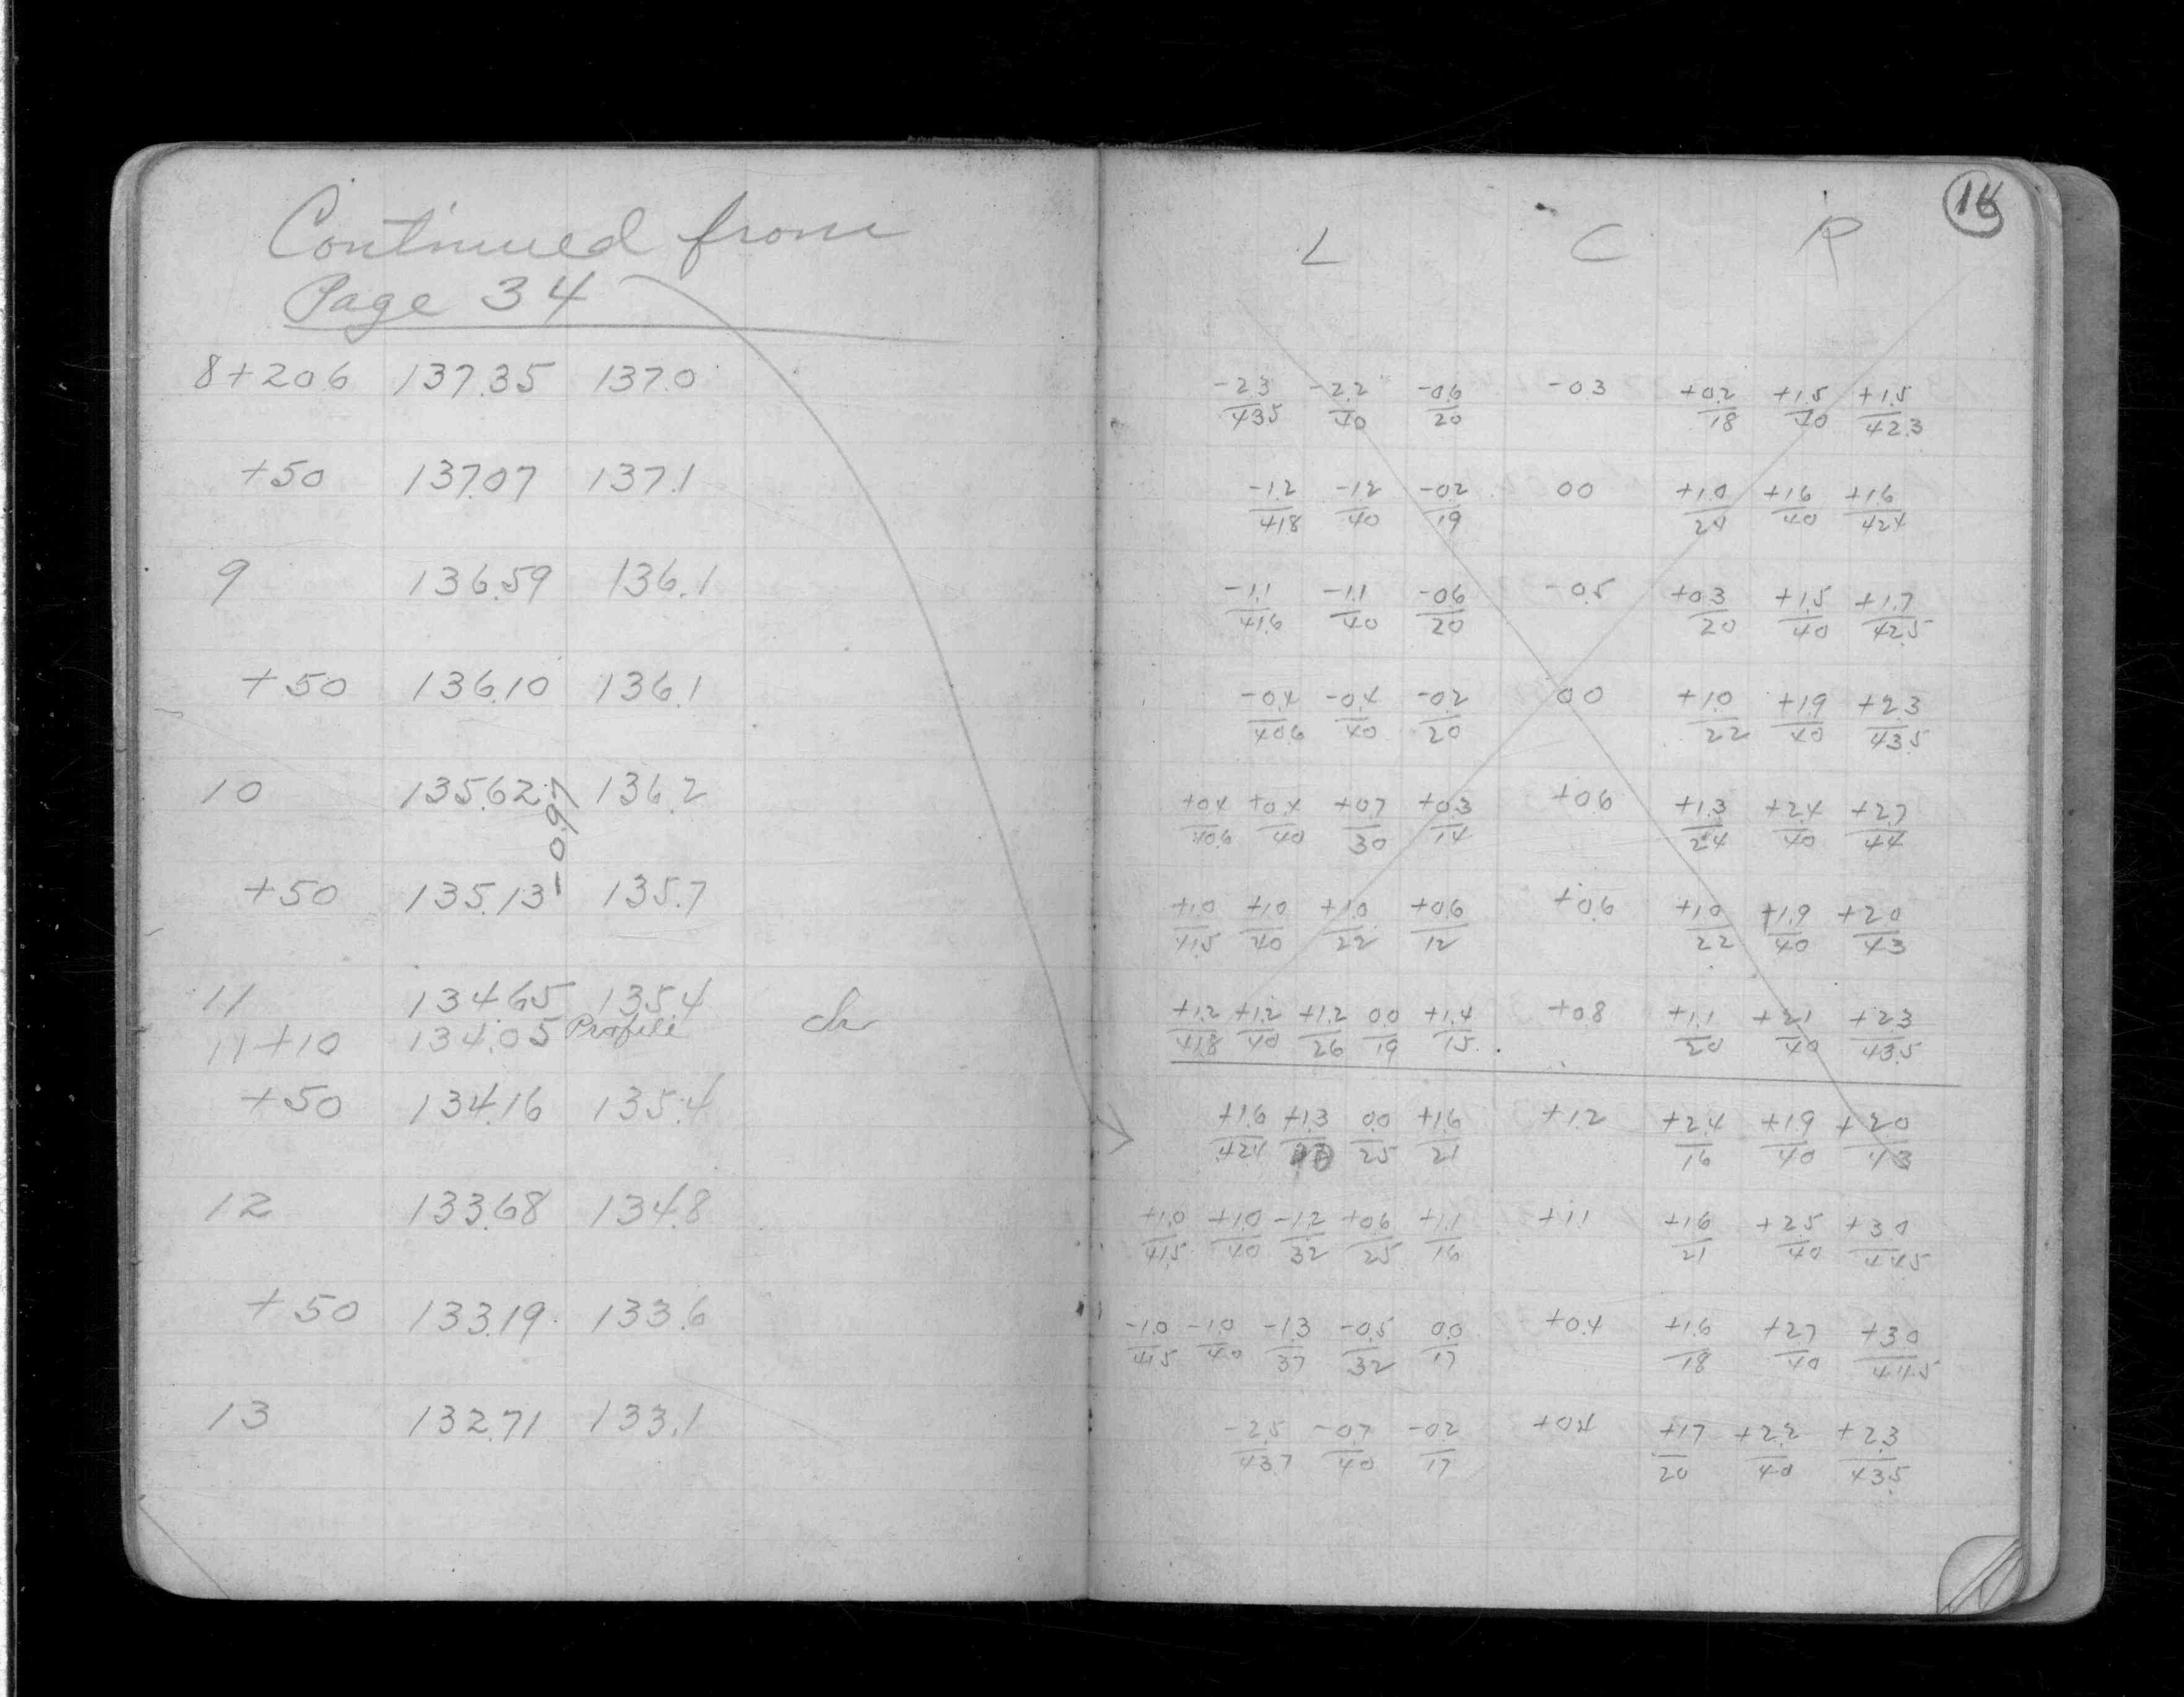 Continued from
Page 34
8+20.6 137.35 137.0
+50 137.07 137.1
9 136.59 136.1
+50 136.10 136.1
10 135.62 136.2
-0.97
+50 135.13 135.7
11 134.65 135.4
11+10 134.05 Profile
+50 134.16 135.4
12 133.68 134.8
+50 133.19 133.6
13 132.71 133.1
L C R
-2.3/43.5 -2.2/40 -0.6/20 -0.3 +0.2/18 +1.5/40 +1.5/42.3
-1.2/41.8 -1.2/40 -0.2/19 0.0 +1.0/24 +1.6/40 +1.6/42.4
-1.1/41.6 -1.1/40 -0.6/20 -0.5 +0.3/20 +1.5/40 +1.7/42.5
-0.4/40.6 -0.4/40 -0.2/20 0.0 +1.0/22 +1.9/40 +2.3/43.5
+0.4/40.6 +0.4/40 +0.7/30 +0.3/14 +0.6 +1.3/24 +2.4/40 +2.7/44
+1.0/41.5 +1.0/40 +1.0/22 +0.6/12 +0.6 +1.0/22 +1.9/40 +2.0/43
+1.2/41.8 +1.2/40 +1.2/26 0.0/19 +1.4/15 +0.8 +1.1/20 +2.1/40 +2.3/43.5
+1.6/42.4 +1.3 0.0/25 +1.6/21 +1.2 +2.4/16 +1.9/40 +2.0/43
+1.0/41.5 +1.0/40 -1.2/32 +0.6/25 +1.1/16 +1.1 +1.6/21 +2.5/40 +3.0/44.5
-1.0/41.5 -1.0/40 -1.3/37 -0.5/32 0.0/17 +0.4 +1.6/18 +2.7/40 +3.0/44.5
-2.5/43.7 -0.7/40 -0.2/17 +0.4 +1.7/20 +2.2/40 +2.3/43.5